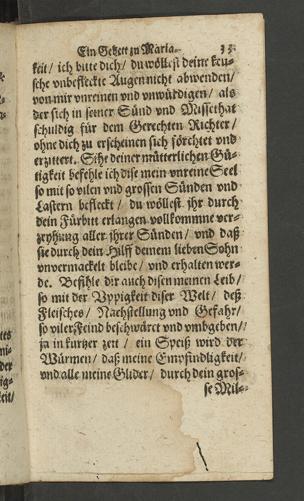 Ein Gebett zu Maria. 33
keit/ ich bitte dich/ du wöllest deine keu-
sche vnbefleckte Augen nicht abwenden/
von mir vnreinen vnd vnwürdigen/ als
der sich in seiner Sünd vnd Missethat
schuldig für dem Gerechten Richter/
ohne dich zu erscheinen sich förchtet vnd
erzittert. Sihe deiner mütterlichen Gü-
tigkeit befehle ich dise mein vnreine Seel
so mit so vilen vnd grossen Sünden vnd
Lastern befleckt/ du wöllest jhr durch
dein Fürbitt erlangen vollkommne ver-
zeyhung aller jhrer Sünden/ vnd daß
sie durch dein Hilff deinem lieben Sohn
vnvermackelt bleibe/ vnd erhalten wer-
de. Befihle dir auch disen meinen Leib/
so mit der Vppigkeit diser Welt/ deß
Fleisches/ Nachstellung vnd Gefahr/
so viler Feind beschwäret vnd vmbgeben/
ja in kurtzer zeit/ ein Speiß wird der
Würmen/ daß meine Empfindligkeit/
vnd alle meine Glider/ durch dein gros-
se Mil-
ttes
mi-
der
ig-
keit/